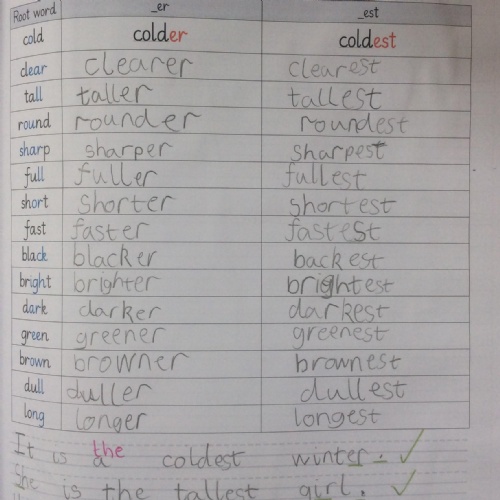 Root word _er _est
cold colder coldest
clear clearer clearest
tall taller tallest
round rounder roundest
sharp sharper sharpest
full fuller fullest
short shorter shortest
fast faster fastest
black blacker backest
bright brighter brightest
dark darker darkest
green greener greenest
brown browner brownest
dull duller dullest
long longer longest
the
It is a coldest winter.
She is the tallest girl.